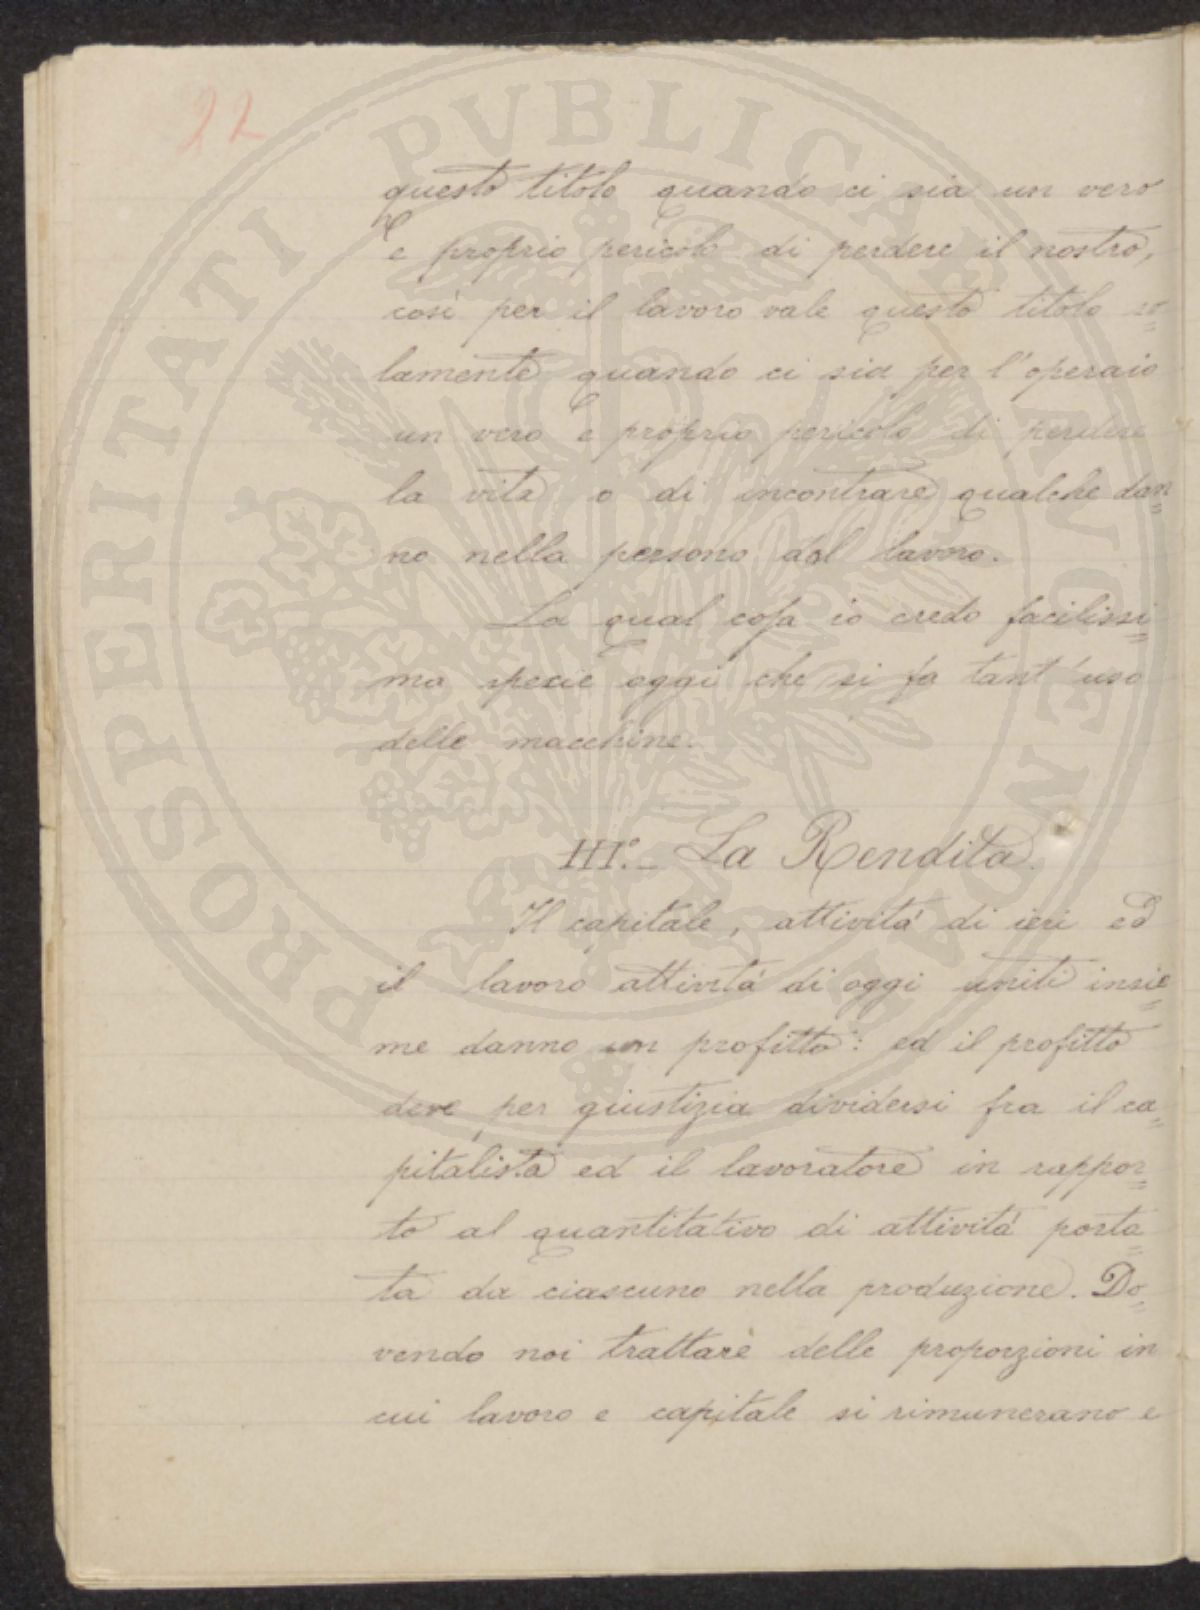 22
PROSPERITATI PVBLICAE AVGENDAE
questo titolo quando ci sia un vero
e proprio pericolo di perdere il nostro,
così per il lavoro vale questo titolo so=
lamente quando ci sia per l'operaio
un vero e proprio pericolo di perdere
la vita o di incontrare qualche dan=
no nella persona dal lavoro.
La qual cosa io credo facilissi=
ma specie oggi che si fa tant'uso
delle macchine.
III.° - La Rendita.
Il capitale, attività di ieri ed
il lavoro attività di oggi uniti insie=
me danno un profitto: ed il profitto
deve per giustizia dividersi fra il ca=
pitalista ed il lavoratore in rappor=
to al quantitativo di attività porta=
ta da ciascuno nella produzione. Do=
vendo noi trattare delle proporzioni in
cui lavoro e capitale si rimunerano e